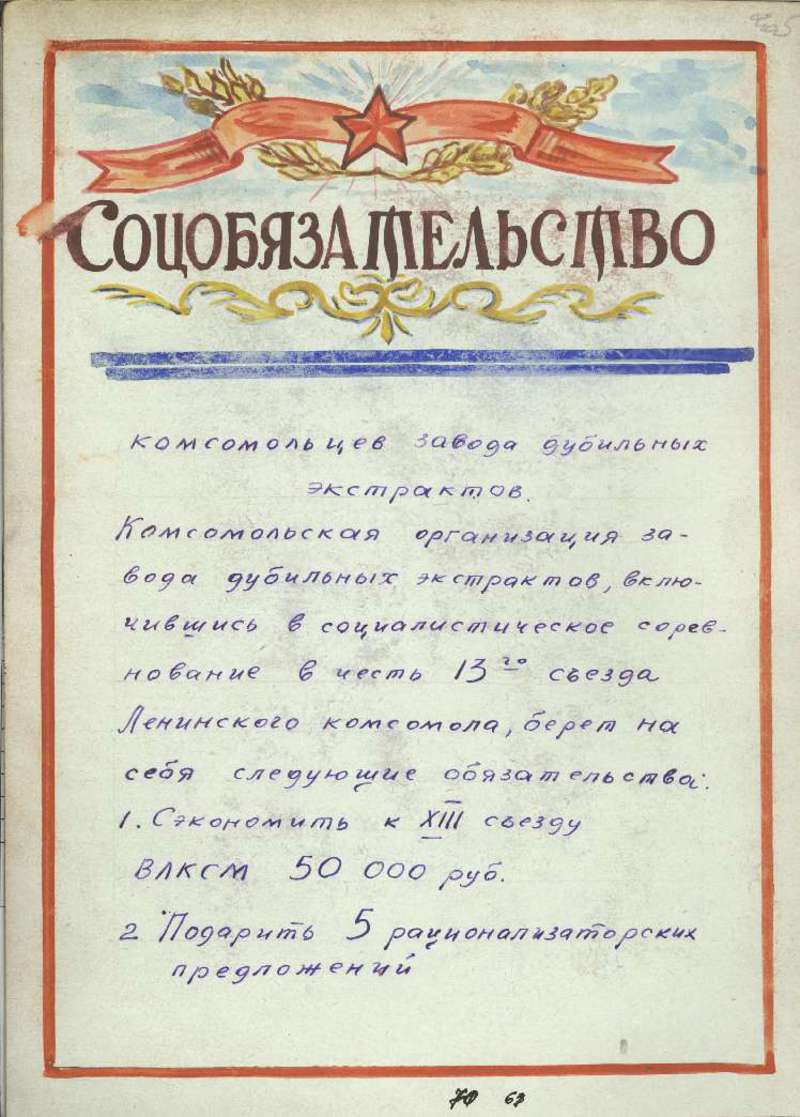 Соцобязательство
комсомольцев завода дубильных
экстрактов.
Комсомольская организация за-
вода дубильных экстрактов, вклю-
чившись в социалистическое сорев-
нование в честь 13го съезда
Ленинского комсомола, берет на
себя следующие обязательства:
1. Сэкономить к XIII съезду
ВЛКСМ 50 000 руб.
2 Подарить 5 рационализаторских
предложений
63